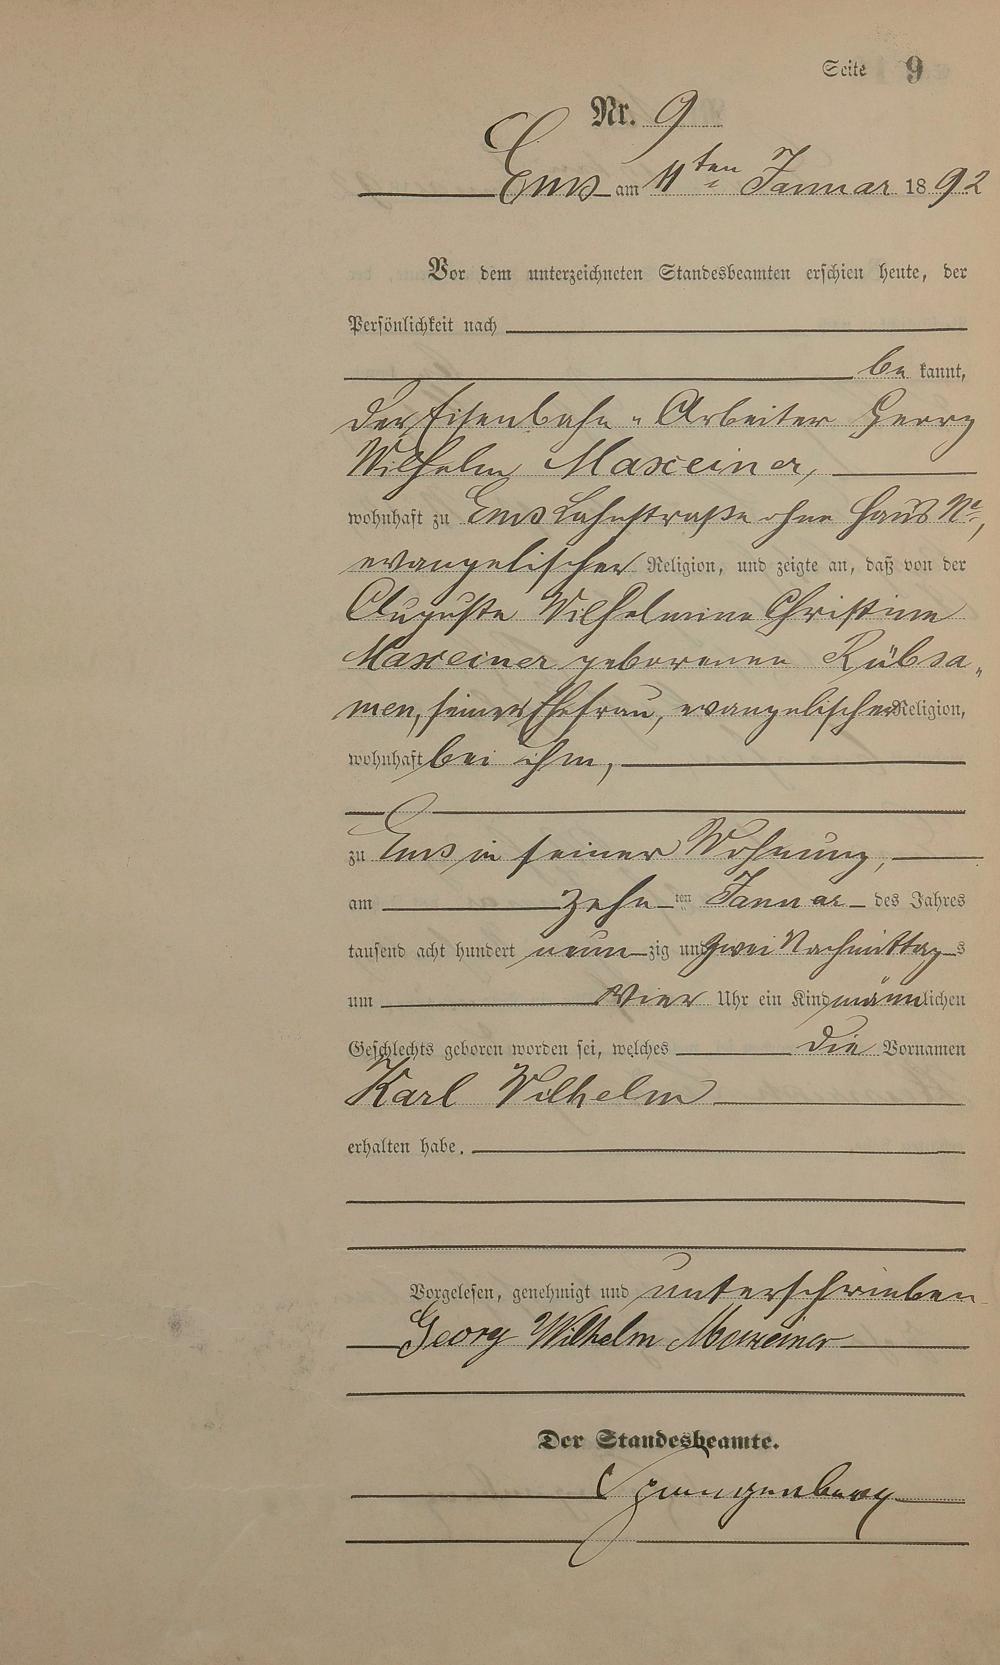 Seite 9
Nr. 9
Ems am 11ten Januar 1892
Vor dem unterzeichneten Standesbeamten erschien heute, der
Persönlichkeit nach
be kannt,
der Eisenbahn-Arbeiter Georg
Wilhelm Maxeiner,
wohnhaft zu Ems Lahnstraße ohne Haus No,
evangelischer Religion, und zeigte an, daß von der
Auguste Wilhelmine Christine
Maxeiner geborenen Rübsa„
men, seiner Ehefrau, evangelischer Religion,
wohnhaft bei ihm,
zu Ems in seiner Wohnung,
am zehn ten Januar des Jahres
tausend acht hundert neun zig und zwei Nachmittag s
um vier Uhr ein Kind männlichen
Geschlechts geboren worden sei, welches die Vornamen
Karl Wilhelm
erhalten habe.
Vorgelesen, genehmigt und unterschrieben
Georg Wilhelm Maxeiner
Der Standesbeamte.
Spangenberg